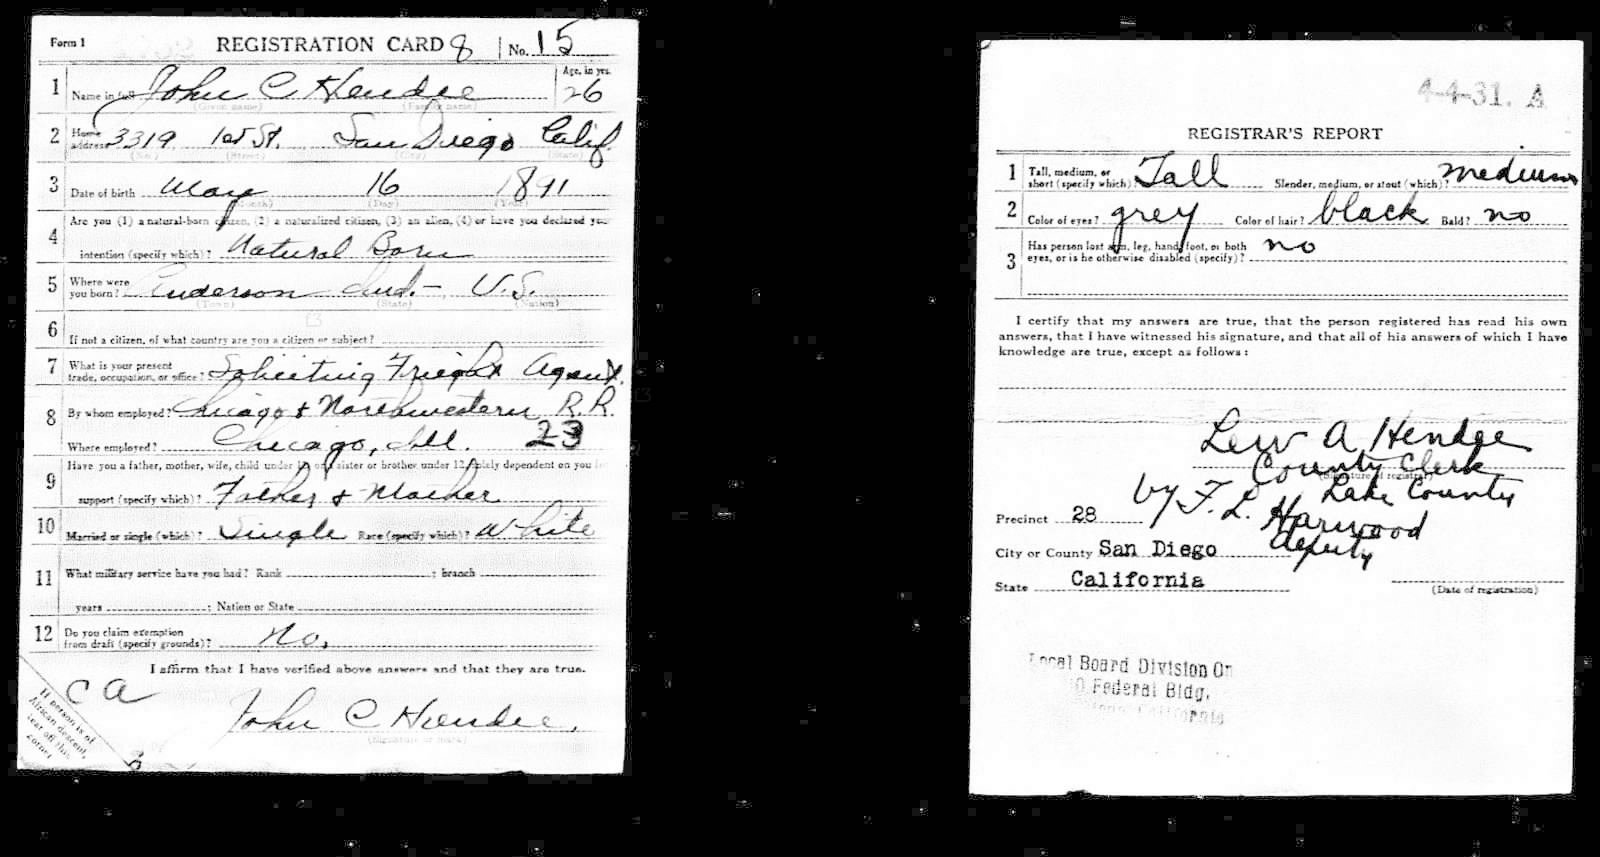 Form 1 REGISTRATION CARD 8 No. 15
1 Name in full John C Hendee Age, in yrs. 26
(Given name) (Family name)
2 Home address 3319 1st St. San Diego Calif
(No.) (Street) (City) (State)
3 Date of birth May 16 1891
(Month) (Day) (Year)
4 Are you (1) a natural-born citizen, (2) a naturalized citizen, (3) an alien, (4) or have you declared your
intention (specify which)? Natural Born
5 Where were you born? Anderson Ind. - U.S.
(Town) (State) (Nation)
6 If not a citizen, of what country are you a citizen or subject?
7 What is your present trade, occupation, or office? Soliciting Frieght Agent.
8 By whom employed? Chicago & Northwestern R.R.
Where employed? Chicago, Ill. 23
9 Have you a father, mother, wife, child under 12, or a sister or brother under 12, solely dependent on you for
support (specify which)? Father & Mother
10 Married or single (which)? Single Race (specify which)? White
11 What military service have you had? Rank ; branch
years ; Nation or State
12 Do you claim exemption from draft (specify grounds)? No.
I affirm that I have verified above answers and that they are true.
C A
John C Hendee.
(Signature or mark)
If person is of
African descent,
tear off this
corner
4-4-31. A
REGISTRAR'S REPORT
1 Tall, medium, or short (specify which)? Tall Slender, medium, or stout (which)? medium
2 Color of eyes? grey Color of hair? black Bald? no
3 Has person lost arm, leg, hand, foot, or both
eyes, or is he otherwise disabled (specify)? no
I certify that my answers are true, that the person registered has read his own
answers, that I have witnessed his signature, and that all of his answers of which I have
knowledge are true, except as follows:
Lew A Hendee
County Clerk
(Signature of registrar)
Lake County
by F. L. Harwood
deputy
Precinct 28
City or County San Diego
State California
(Date of registration)
Local Board Division On
0 Federal Bldg.
California